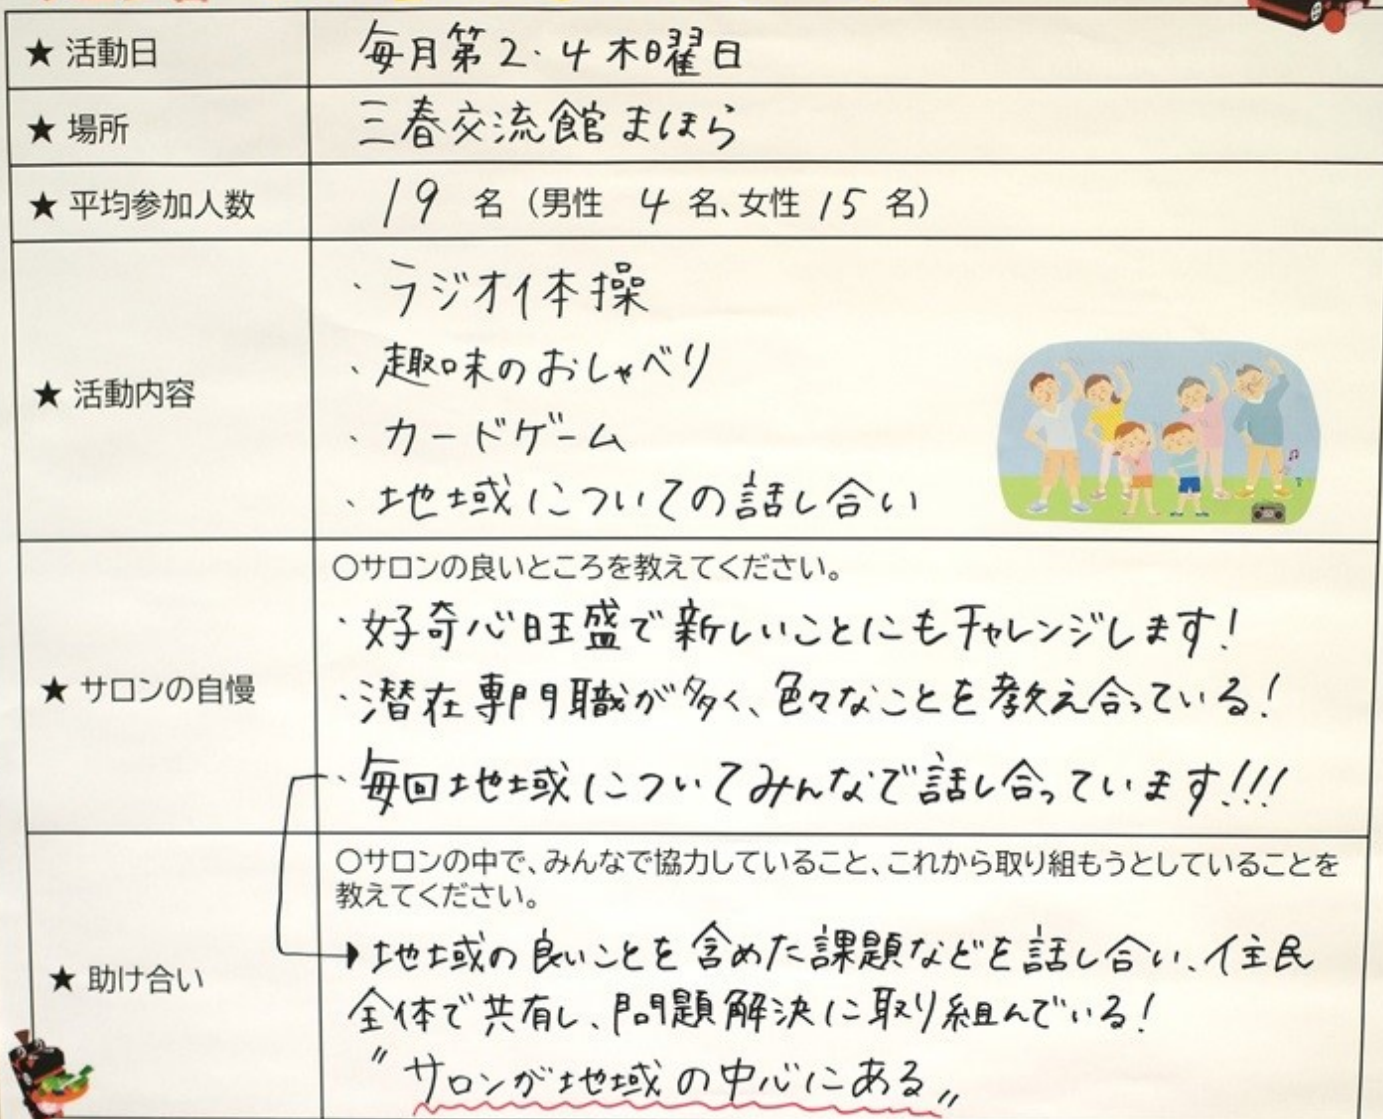 ★ 活動日
毎月第2・4木曜日
★ 場所
三春交流館まほら
★ 平均参加人数
19 名（男性 4 名、女性 15 名）
★ 活動内容
・ラジオ体操
・趣味のおしゃべり
・カードゲーム
・地域についての話し合い
★ サロンの自慢
○サロンの良いところを教えてください。
・好奇心旺盛で新しいことにもチャレンジします！
・潜在専門職が多く、色々なことを教え合っている！
・毎回地域についてみんなで話し合っています!!!
★ 助け合い
○サロンの中で、みんなで協力していること、これから取り組もうとしていることを
教えてください。
地域の良いことを含めた課題などを話し合い、住民
全体で共有し、問題解決に取り組んでいる！
〝サロンが地域の中心にある〟